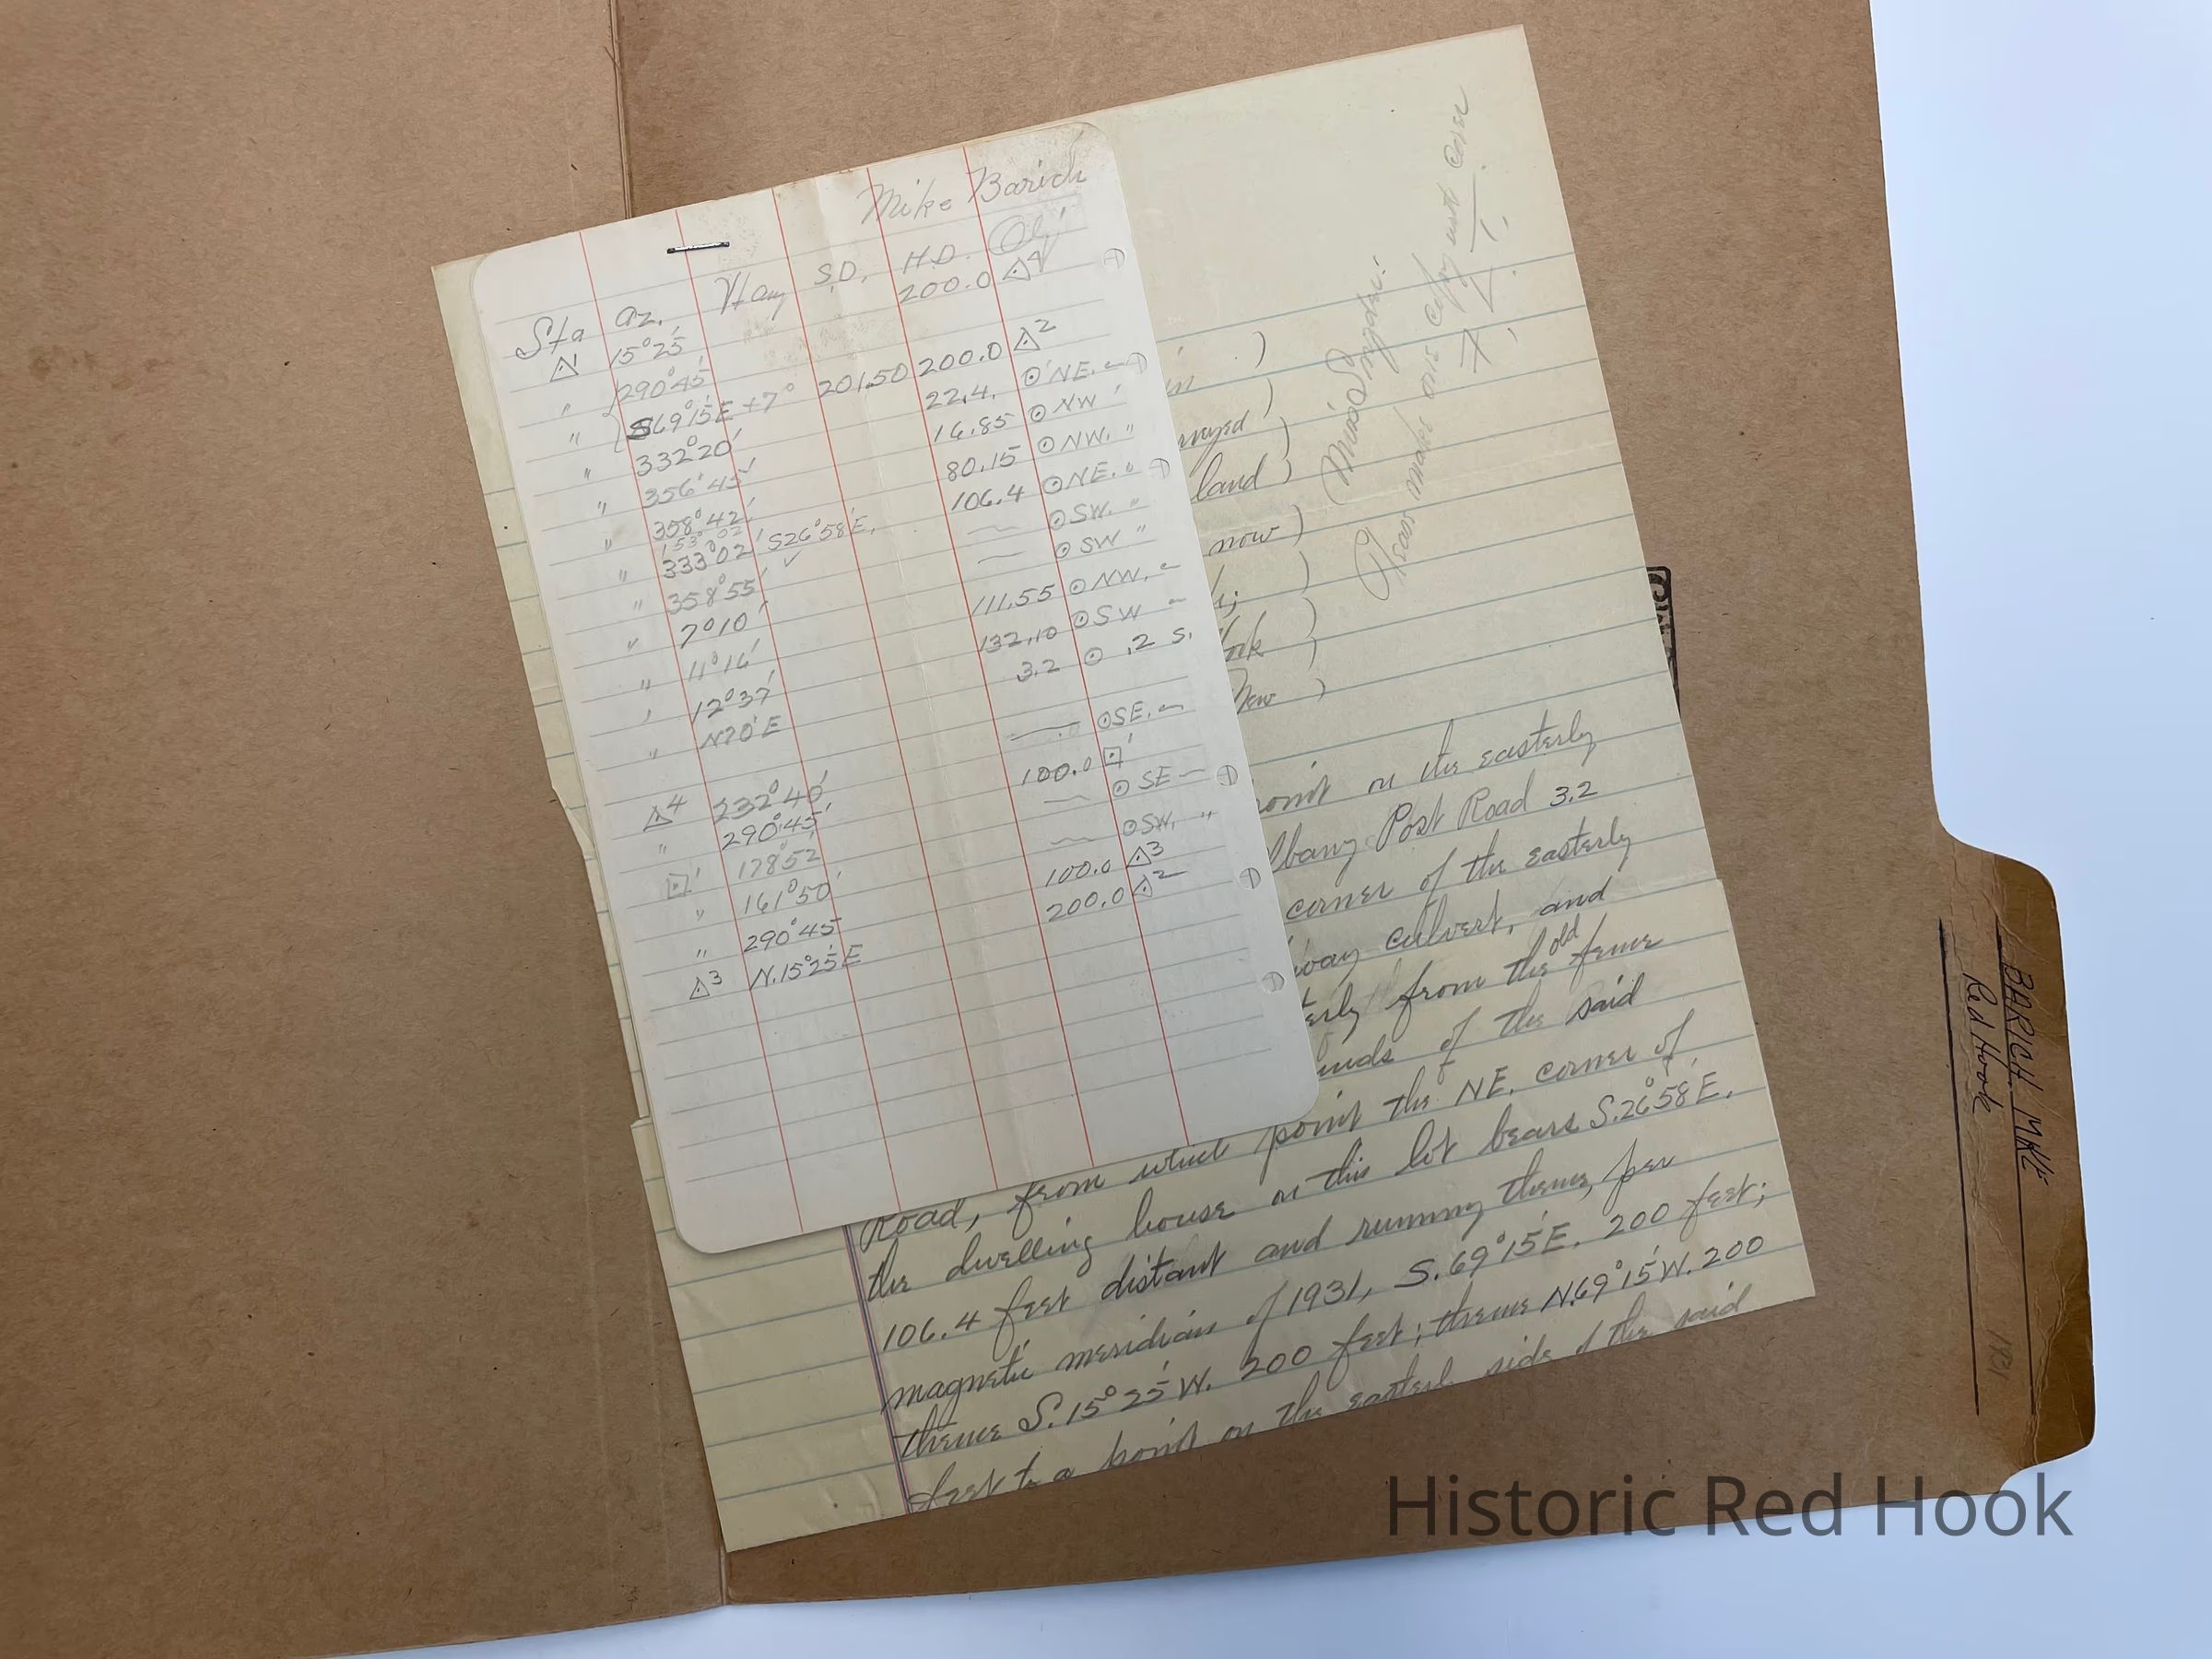 Mike Barich
Sta az. Vang S.D. H.D. Obj
△1 15°25' 200.0 △4
" 290°45'
" S69°15'E +7° 201.50 200.0 △2
" 332°20' 22.4. ⊙ NE.
" 356°45' ✓ 16.85 ⊙ NW "
" 358°42' 80.15 ⊙ NW. "
153°02'
" 333°02' S26°58'E. 106.4 ⊙ NE. "
" 358°55' ✓ ⊙ SW. "
" 7°10' ⊙ SW "
" 11°16' 111.55 ⊙ NW.
" 12°37' 132.10 ⊙ SW
" N70°E 3.2 ⊙ .2 S.
△4 232°40' ⊙ SE.
" 290°45' 100.0 ⊡1
⊡1 178°52' ⊙ SE
" 161°50' ⊙ SW. "
" 290°45' 100.0 △3
△3 N.15°25'E 200.0 △2
Miss Snyder:
Please make one copy with cover
)
)
)
land )
now )
)
)
New )
on the easterly
Albany Post Road 3.2
corner of the easterly
culvert, and
from the old fence
of the said
Road, from which point the NE. corner of
the dwelling house on this lot bears S.26°58'E.
106.4 feet distant and running thence, per
magnetic meridian of 1931, S.69°15'E. 200 feet;
thence S.15°25'W. 200 feet; thence N.69°15'W. 200
feet to a point on the easterly side of the said
BARICH, MIKE
Red Hook
1931
Historic Red Hook